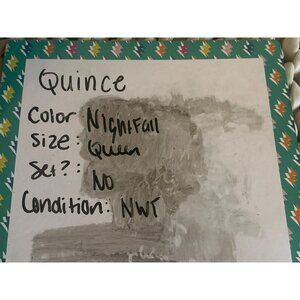 Quince
Color: Nightfall
Size: Queen
Set?: No
Condition: NWT